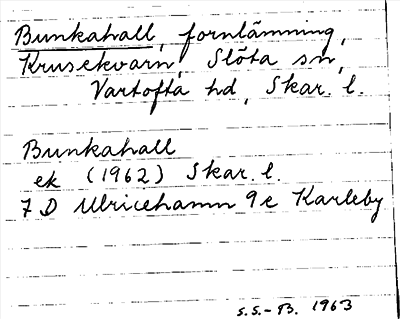 Bunkahall, fornlämning,
Krusekvarn, Slöta sn,
Vartofta hd, Skar. l.
Bunkahall
ek (1962) Skar. l.
7 D Ulricehamn 9e Karleby
S.S.-B. 1963